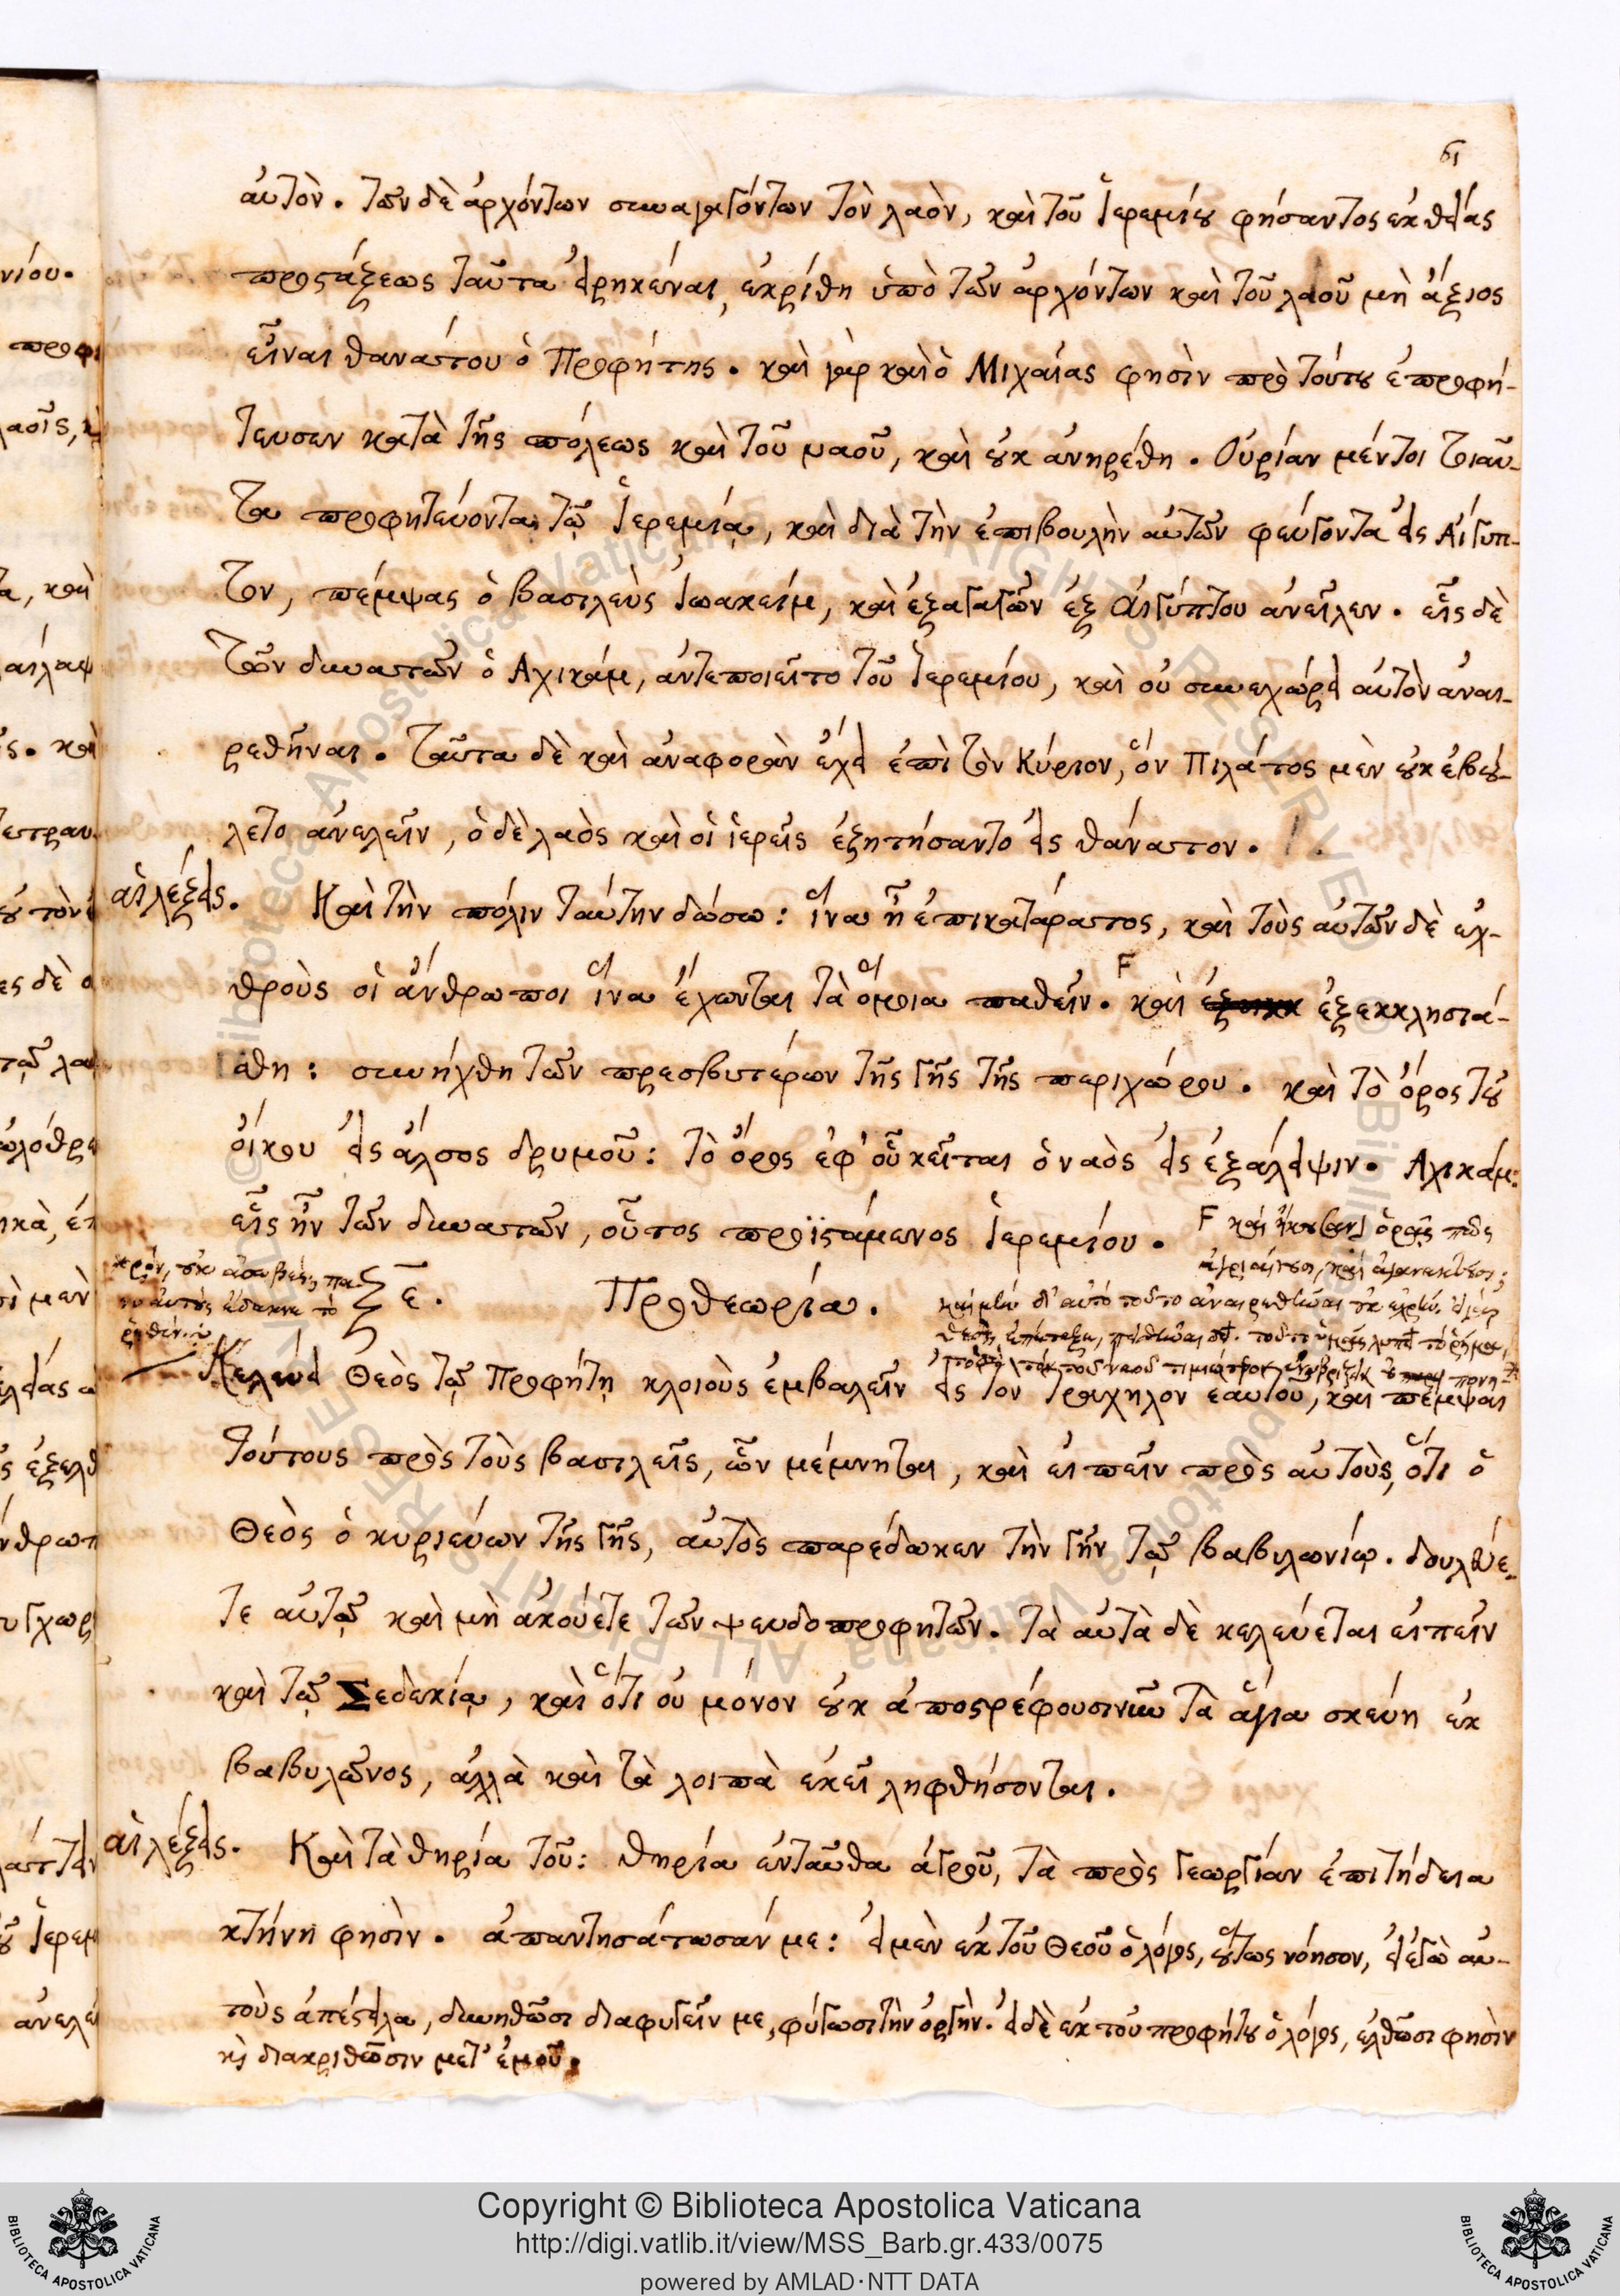 61
αὐτὸν. τῶν δὲ ἀρχόντων συναγαγόντων τὸν λαὸν, καὶ τοῦ Ἱερεμίου φήσαντος ἐκ θείας
προστάξεως ταῦτα εἰρηκέναι, ἐκρίθη ὑπὸ τῶν ἀρχόντων καὶ τοῦ λαοῦ μὴ ἄξιος
εἶναι θανάτου ὁ Προφήτης. καὶ γὰρ καὶ ὁ Μιχαίας φησὶν πρὸ τούτου ἐπροφή-
τευσεν κατὰ τῆς πόλεως καὶ τοῦ ναοῦ, καὶ οὐκ ἀνηρέθη. Οὐρίαν μέντοι τοιαῦ-
τα προφητεύοντα τῷ Ἱερεμίᾳ, καὶ διὰ τὴν ἐπιβουλὴν αὐτῶν φεύγοντα εἰς Αἴγυπ-
τον, πέμψας ὁ βασιλεὺς Ἰωακεὶμ, καὶ ἐξαγαγὼν ἐξ Αἰγύπτου ἀνεῖλεν. εἷς δὲ
τῶν δυνατῶν ὁ Αχικάμ, ἀντεποιεῖτο τοῦ Ἱερεμίου, καὶ οὐ συνεχώρει αὐτὸν ἀναι-
ρεθῆναι. ταῦτα δὲ καὶ ἀναφορὰν ἔχει ἐπὶ τὸν Κύριον, ὃν Πιλάτος μὲν οὐκ ἐβού-
λετο ἀνελεῖν, ὁ δὲ λαὸς καὶ οἱ ἱερεῖς ἐξητήσαντο εἰς θάνατον.
αἱ λέξεις. Καὶ τὴν πόλιν ταύτην δώσω: ἵνα ᾖ ἐπικατάρατος, καὶ τοὺς αὐτῶν δὲ ἐχ-
θροὺς οἱ ἄνθρωποι ἵνα ἔχωνται τὰ ὅμοια παθεῖν. F καὶ ἐξεκκλησιά-
σθη: συνήχθη τῶν πρεσβυτέρων τῆς γῆς τῆς περιχώρου. καὶ τὸ ὄρος τοῦ
οἴκου εἰς ἄλσος δρυμοῦ: τὸ ὄρος ἐφ' οὗ κεῖται ὁ ναὸς εἰς ἐξάλειψιν. Αχικάμ:
εἷς ἦν τῶν δυνατῶν, οὗτος προϊστάμενος Ἱερεμίου. F καὶ ἤκουσαν] ὁρᾷς πῶς
ξε. Προθεωρία.
Κελεύει Θεὸς τῷ Προφήτῃ κλοιοὺς ἐμβαλεῖν εἰς τὸν τράχηλον ἑαυτοῦ, καὶ πέμψαι
τούτους πρὸς τοὺς βασιλεῖς, ὧν μέμνηται, καὶ εἰπεῖν πρὸς αὐτοὺς, ὅτι ὁ
Θεὸς ὁ κυριεύων τῆς γῆς, αὐτὸς παρέδωκεν τὴν γῆν τῷ βαβυλωνίῳ. δουλεύε-
τε αὐτῷ καὶ μὴ ἀκούετε τῶν ψευδοπροφητῶν. τὰ αὐτὰ δὲ κελεύεται εἰπεῖν
καὶ τῷ Σεδεκίᾳ, καὶ ὅτι οὐ μόνον οὐκ ἀποστρέφουσιν τὰ ἅγια σκεύη ἐκ
βαβυλῶνος, ἀλλὰ καὶ τὰ λοιπὰ ἐκεῖ ληφθήσονται.
αἱ λέξεις. Καὶ τὰ θηρία τοῦ: θηρία ἐνταῦθα ἀγροῦ, τὰ πρὸς γεωργίαν ἐπιτήδεια
κτήνη φησὶν. ἀπαντησάτωσάν με: εἰ μὲν ἐκ τοῦ Θεοῦ ὁ λόγος, οὕτως νόησον, εἰ ἐγὼ αὐ-
τοὺς ἀπέστειλα, δυνηθῶσι διαφυγεῖν με, φύγωσι τὴν ὀργὴν. εἰ δὲ ἐκ τοῦ προφήτου ὁ λόγος, ἐλθῶσι φησὶν
κὶ διακριθῶσιν μετ' ἐμοῦ.
Copyright © Biblioteca Apostolica Vaticana
http://digi.vatlib.it/view/MSS_Barb.gr.433/0075
powered by AMLAD·NTT DATA